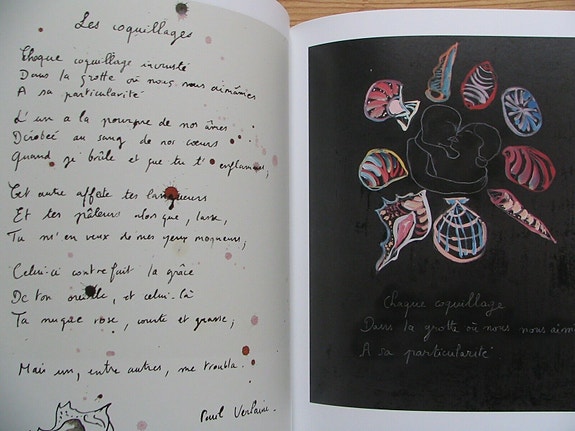 Les coquillages
Chaque coquillage incrusté
Dans la grotte où nous nous aimâmes
A sa particularité
L'un a la pourpre de nos âmes
Dérobée au sang de nos coeurs
Quand je brûle et que tu t'enflammes,
Cet autre affecte tes langueurs
Et tes pâleurs alors que, lasse,
Tu m'en veux de mes yeux moqueurs;
Celui-ci contrefait la grâce
De ton oreille, et celui-là
Ta nuque rose, courte et grasse;
Mais un, entre autres, me troubla.
Paul Verlaine.
Chaque coquillage
Dans la grotte où nous nous aim
A sa particularité